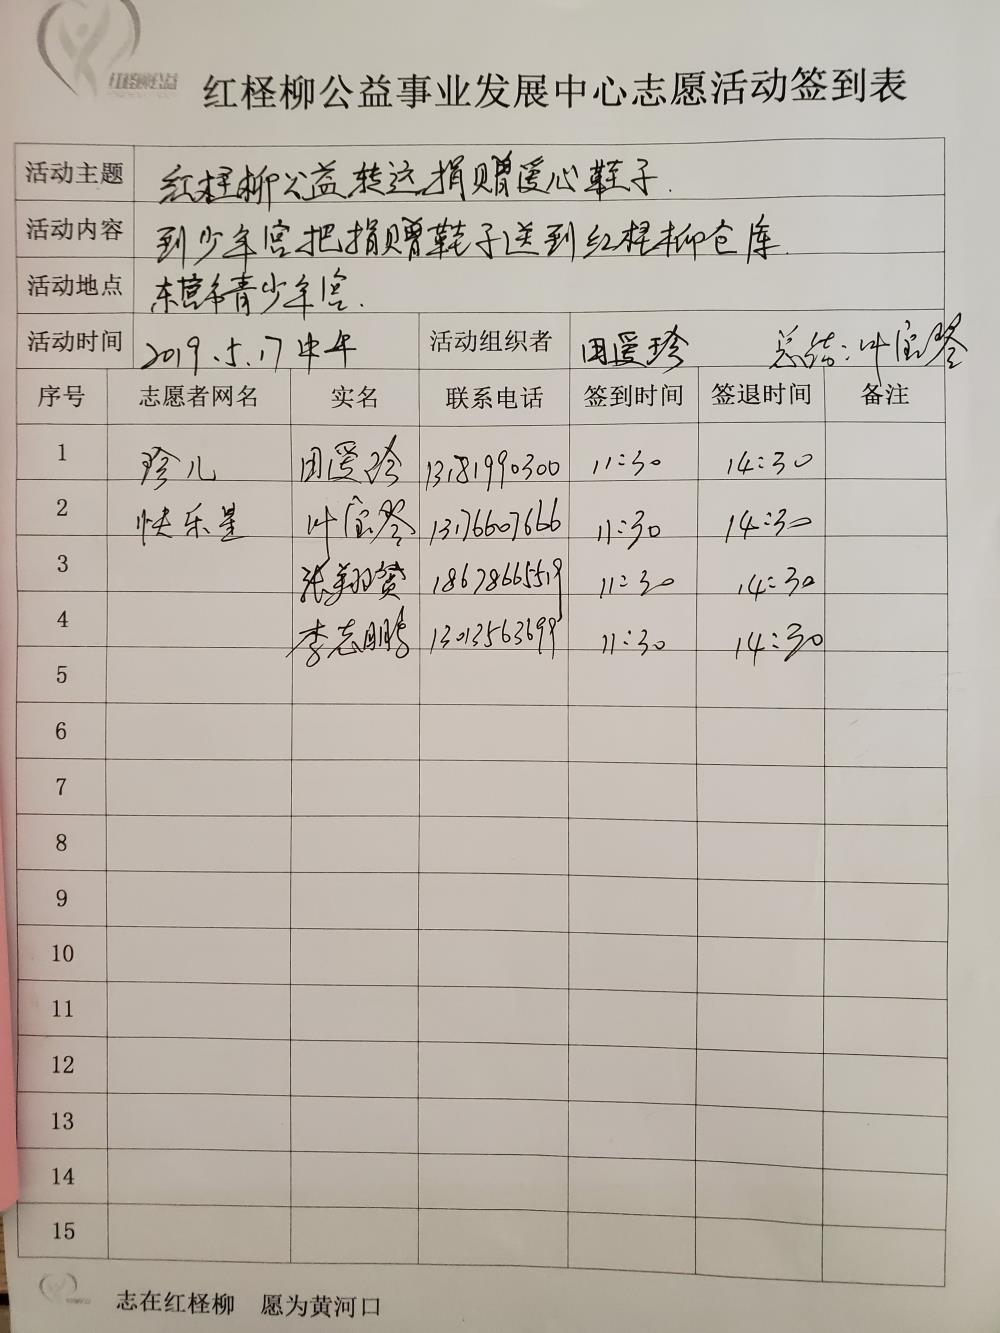 红柽柳公益
红柽柳公益事业发展中心志愿活动签到表
活动主题 红柽柳公益转运捐赠爱心鞋子.
活动内容 到少年宫把捐赠鞋子送到红柽柳仓库.
活动地点 东营市青少年宫.
活动时间 2019.5.17中午 活动组织者 田爱珍 总结:叶宝琴
序号 志愿者网名 实名 联系电话 签到时间 签退时间 备注
1 珍儿 田爱珍 13181990300 11:30 14:30
2 快乐星 叶宝琴 13176607666 11:30 14:30
3 张翔 18678665519 11:30 14:30
4 李志鹏 13013563699 11:30 14:30
5
6
7
8
9
10
11
12
13
14
15
志在红柽柳 愿为黄河口